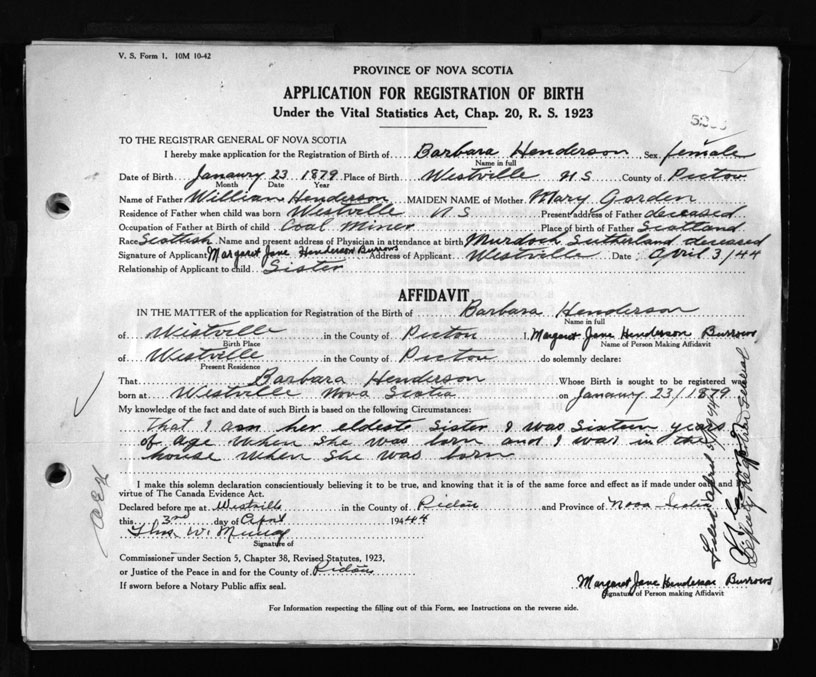 V. S. Form 1. 10M 10-42
PROVINCE OF NOVA SCOTIA
APPLICATION FOR REGISTRATION OF BIRTH
Under the Vital Statistics Act, Chap. 20, R. S. 1923
TO THE REGISTRAR GENERAL OF NOVA SCOTIA
I hereby make application for the Registration of Birth of Barbara Henderson Sex female
Name in full
Date of Birth Janaury 23 1879 Place of Birth Westville N S County of Pictou
Month Date Year
Name of Father William Henderson MAIDEN NAME of Mother Mary Gorden
Residence of Father when child was born Westville N S Present address of Father deceased
Occupation of Father at Birth of child Coal Miner Place of birth of Father Scotland
Race Scottish Name and present address of Physician in attendance at birth Murdoch Sutherland deceased
Signature of Applicant Margaret Jane Henderson Burrows Address of Applicant Westville Date April 3/44
Relationship of Applicant to child Sister
AFFIDAVIT
IN THE MATTER of the application for Registration of the Birth of Barbara Henderson
Name in full
of Westville in the County of Pictou I, Margaret Jane Henderson Burrows
Birth Place Name of Person Making Affidavit
of Westville in the County of Pictou do solemnly declare:
Present Residence
That Barbara Henderson Whose Birth is sought to be registered was
born at Westville Nova Scotia on Janaury 23/1879
My knowledge of the fact and date of such Birth is based on the following Circumstances:
That I am her eldest Sister I was Sixteen years
of age when She was born and I was in the
house when She was born
I make this solemn declaration conscientiously believing it to be true, and knowing that it is of the same force and effect as if made under oath and
virtue of The Canada Evidence Act.
Declared before me at Westville in the County of and Province of Nova Scotia
this 3rd day of April 1944
Thos W. Murray
Signature of
Commissioner under Section 5, Chapter 38, Revised Statutes, 1923,
or Justice of the Peace in and for the County of
If sworn before a Notary Public affix seal.
Margaret Jane Henderson Burrows
Signature of Person making Affidavit
For Information respecting the filling out of this Form, see Instructions on the reverse side.
Deputy Registrar General